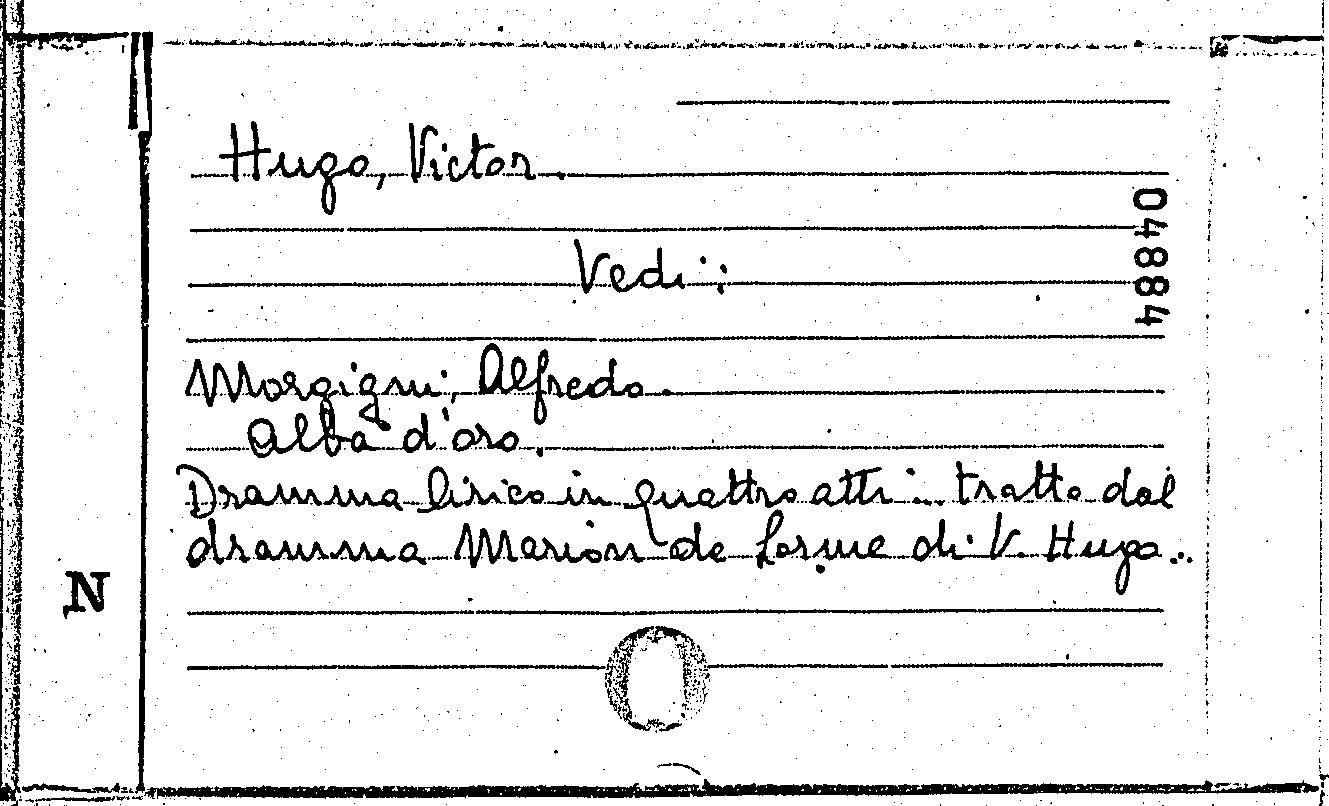 Hugo, Victor.
04884
Vedi:
Morgigni, Alfredo.
Alba d'oro.
Dramma lirico in quattro atti... tratto dal
dramma Marion de Lorme di V. Hugo..
N